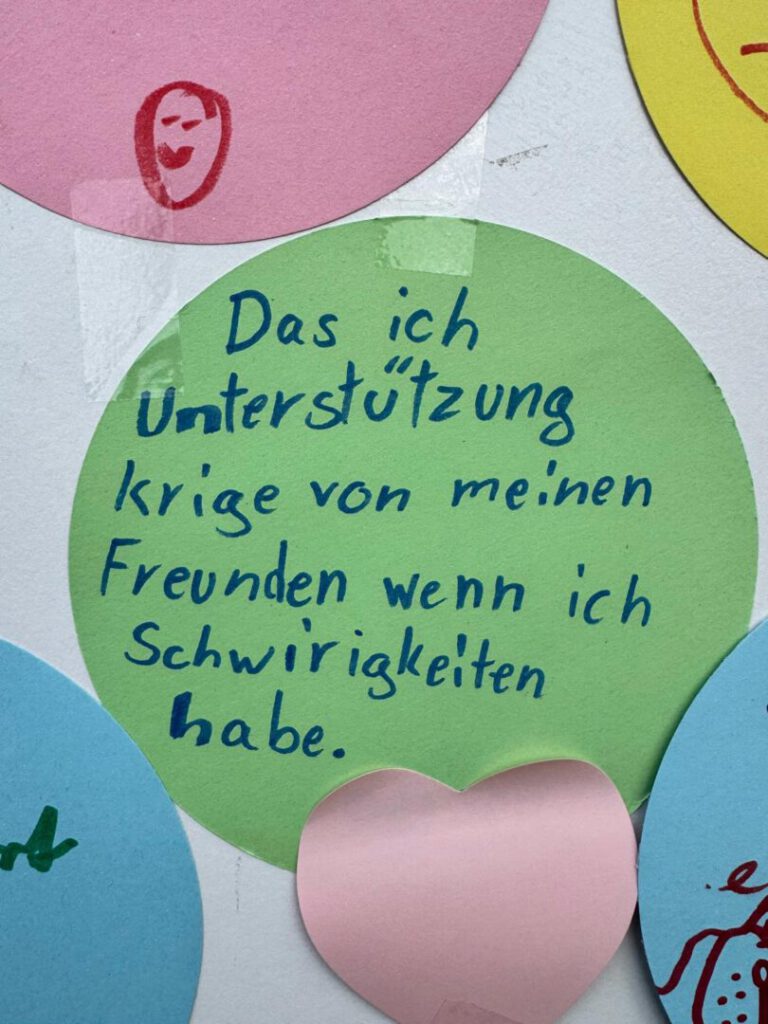 Das ich
Unterstützung
krige von meinen
Freunden wenn ich
Schwirigkeiten
habe.